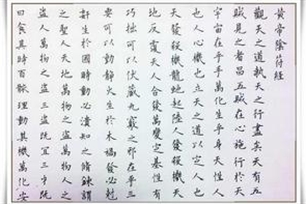 黃帝陰符經
觀天之道執天之行盡矣天有五
賊見之者昌五賊在心施行於天
宇宙在乎手萬化生乎身天性人
也人心機也立天之道以定人也
天發殺機龍蛇起陸人發殺機天
地反覆天人合發萬變定基性有
巧拙可以伏藏九竅之邪在乎三
要可以動靜火生於木禍發必剋
姦生於國時動必潰知之修鍊謂
之聖人天地萬物之盜萬物人之
盜人萬物之盜三盜既宜三才
曰食其時百骸理動其機萬化安